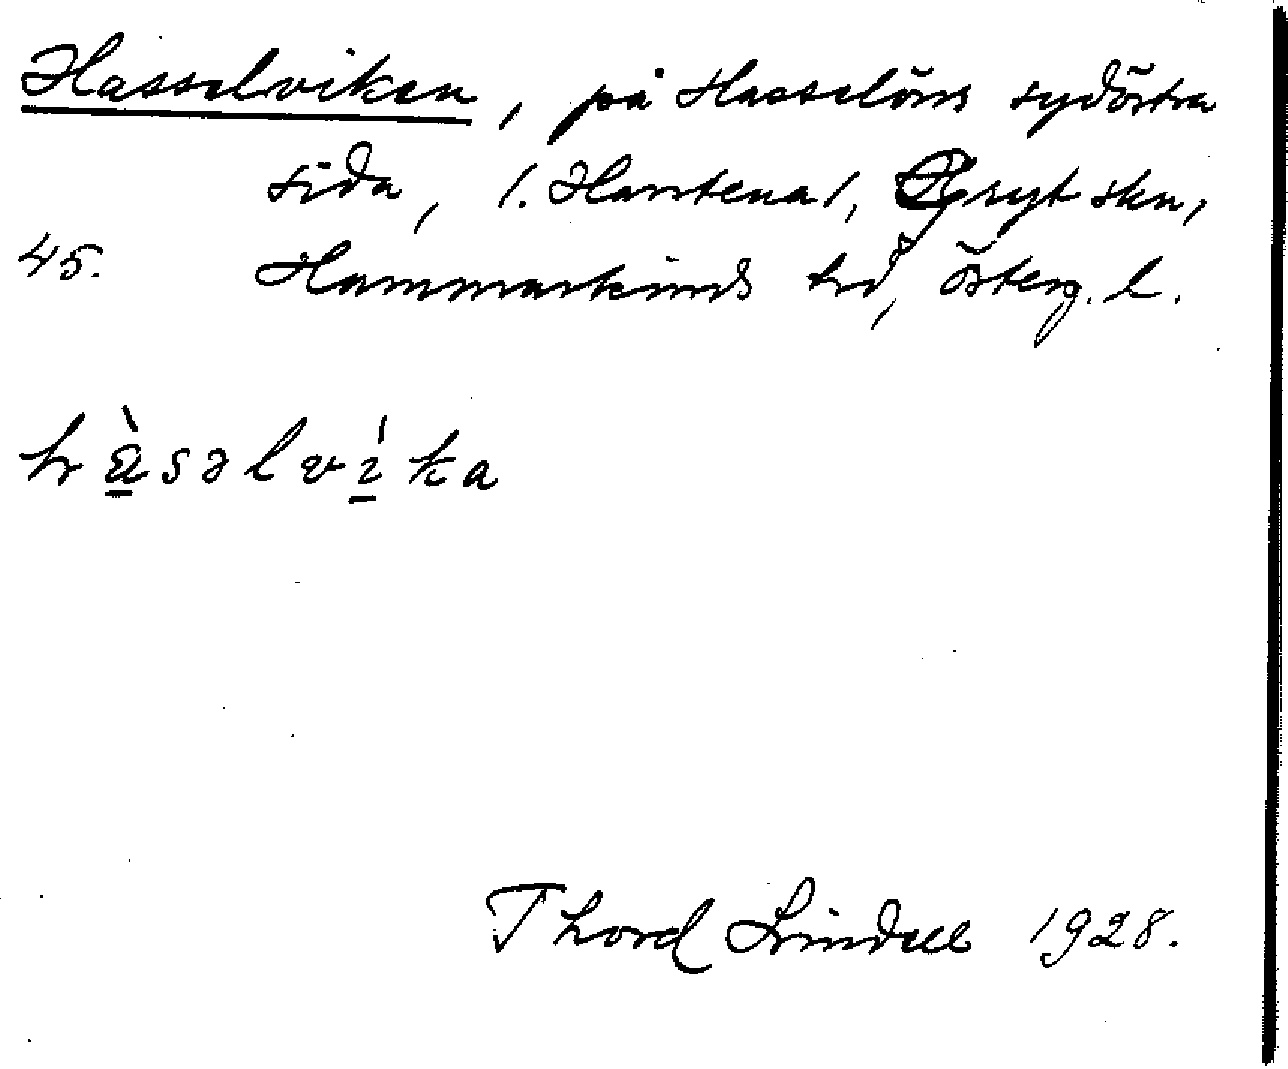 Hasselviken, på Hasselöns sydöstra
sida, (. Harstena), Gryt skn,
45. Hammarkinds hd, Österg. l.
hàsəlvíka
Thord Lindell 1928.